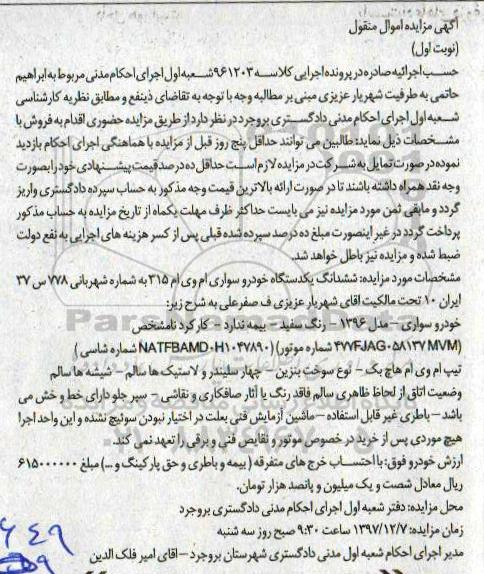 آگهی مزایده اموال منقول
(نوبت اول)
حسب اجرائیه صادره در پرونده اجرایی کلاسه ۹۶۱۲۰۳ شعبه اول اجرای احکام مدنی مربوط به ابراهیم
حاتمی به طرفیت شهریار عزیزی مبنی بر مطالبه وجه با توجه به تقاضای ذینفع و مطابق نظریه کارشناسی
شعبه اول اجرای احکام مدنی دادگستری بروجرد در نظر دارد از طریق مزایده حضوری اقدام به فروش با
مشخصات ذیل نماید: طالبین می توانند حداقل پنج روز قبل از مزایده با هماهنگی اجرای احکام بازدید
نموده در صورت تمایل به شرکت در مزایده لازم است حداقل ده درصد قیمت پیشنهادی خود را بصورت
وجه نقد همراه داشته باشند تا در صورت ارائه بالاترین قیمت وجه مذکور به حساب سپرده دادگستری واریز
گردد و مابقی ثمن مورد مزایده نیز می بایست حداکثر ظرف مهلت یکماه از تاریخ مزایده به حساب مذکور
پرداخت گردد در غیر اینصورت مبلغ ده درصد سپرده شده قبلی پس از کسر هزینه های اجرایی به نفع دولت
ضبط شده و مزایده نیز باطل خواهد شد.
مشخصات مورد مزایده: ششدانگ یکدستگاه خودرو سواری ام وی ام ۳۱۵ به شماره شهربانی ۷۷۸ س ۳۷
ایران ۱۰ تحت مالکیت اقای شهریار عزیزی ف صفرعلی به شرح زیر:
خودرو سواری – مدل ۱۳۹۶ – رنگ سفید – بیمه ندارد – کارکرد نامشخص
(MVM ۴۷۷FJAG۰۵۸۱۳۷ شماره موتور) (NATFBAMD۰H۱۰۴۷۸۹۰ شماره شاسی)
تیپ ام وی ام هاچ بک – نوع سوخت بنزین – چهار سلیندر و لاستیک ها سالم – شیشه ها سالم
وضعیت اتاق از لحاظ ظاهری سالم فاقد رنگ یا آثار صافکاری و نقاشی – سپر جلو دارای خط و خش می
باشد – باطری غیر قابل استفاده – ماشین آزمایش فنی بعلت در اختیار نبودن سوئیچ نشده و این واحد اجرا
هیچ موردی پس از خرید در خصوص موتور و نقایص فنی و برقی را تعهد نمی کند.
ارزش خودرو فوق: با احتساب خرج های متفرقه ( بیمه و باطری و حق پارکینگ و ...) مبلغ ۶۱۵۰۰۰۰۰۰
ریال معادل شصت و یک میلیون و پانصد هزار تومان.
محل مزایده: دفتر شعبه اول اجرای احکام مدنی دادگستری بروجرد
زمان مزایده: ۱۳۹۷/۱۲/۷ ساعت ۹:۳۰ صبح روز سه شنبه
مدیر اجرای احکام شعبه اول مدنی دادگستری شهرستان بروجرد – اقای امیر فلک الدین